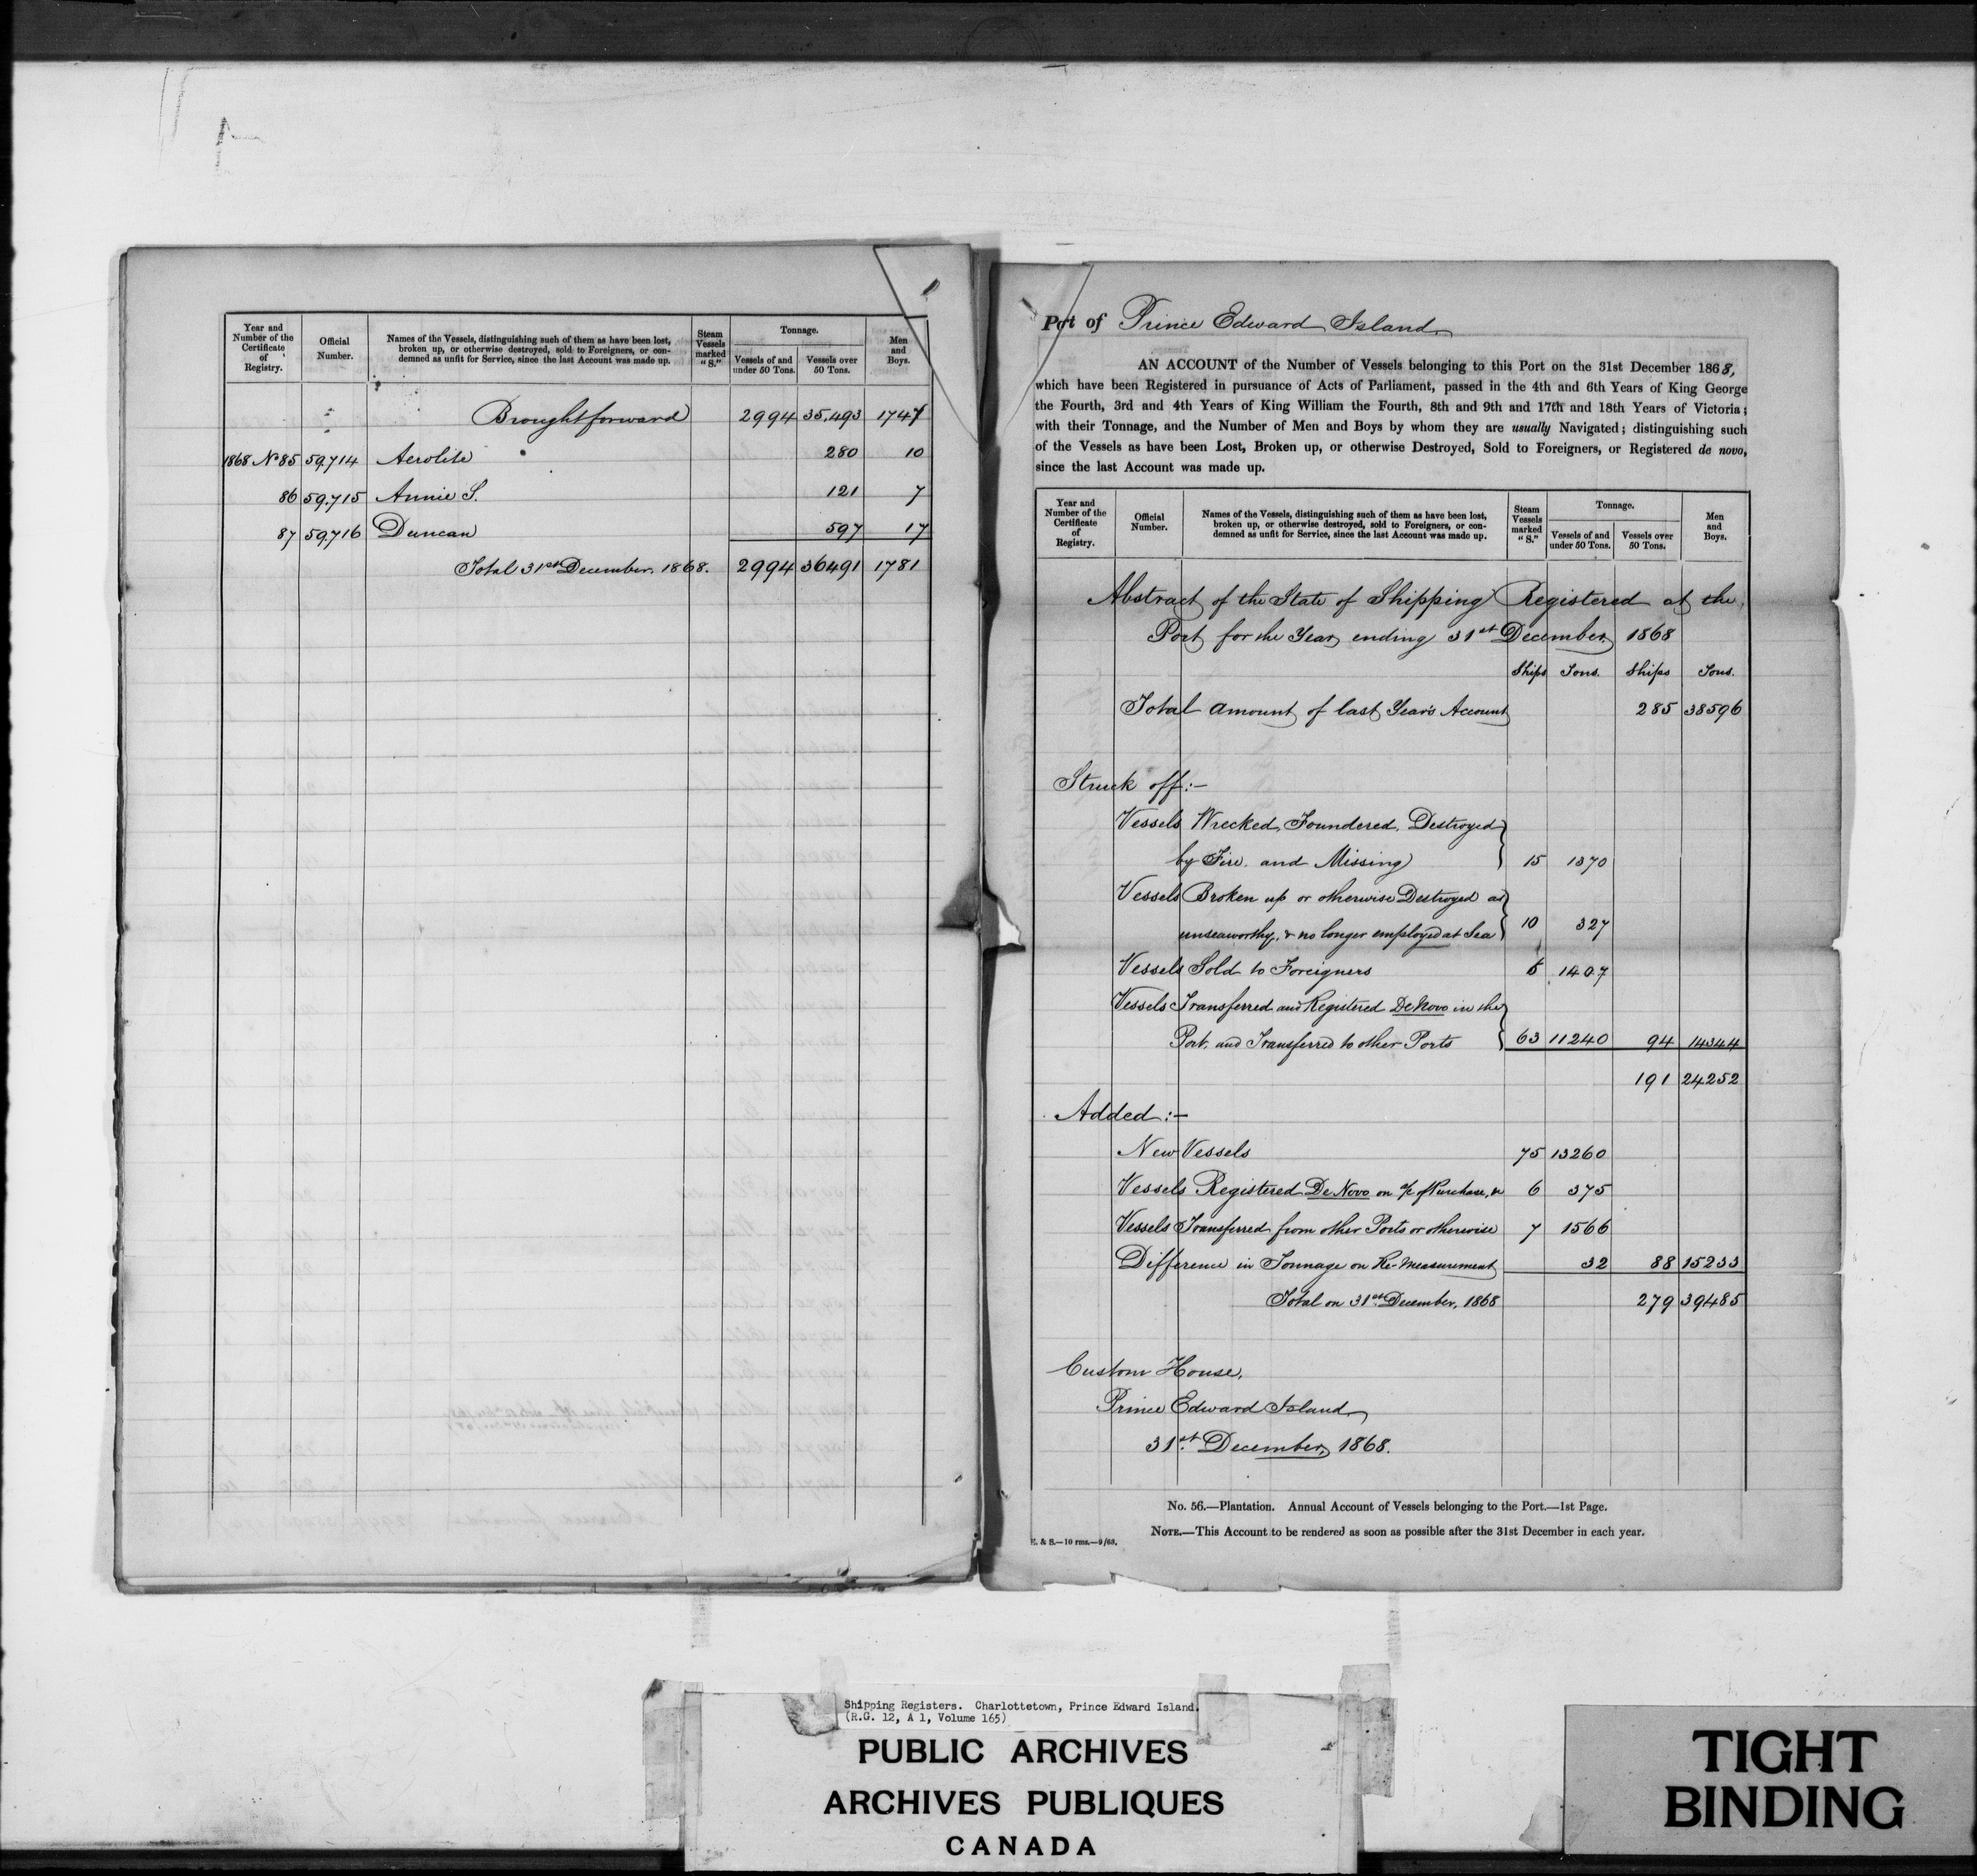 Year and Number of the Certificate of Registry.
Official Number.
Names of the Vessels, distinguishing such of them as have been lost, broken up, or otherwise destroyed, sold to Foreigners, or condemned as unfit for Service, since the last Account was made up.
Steam Vessels marked "S."
Tonnage.
Vessels of and under 50 Tons.
Vessels over 50 Tons.
Men and Boys.
Brought forward 2994 35,493 1747
1868 No 85 59,714 Aerolite 280 10
86 59.715 Annie S. 121 7
87 59716 Duncan 597 17
Total 31st December, 1868. 2994 36491 1781
Port of Prince Edward Island
AN ACCOUNT of the Number of Vessels belonging to this Port on the 31st December 1868,
which have been Registered in pursuance of Acts of Parliament, passed in the 4th and 6th Years of King George
the Fourth, 3rd and 4th Years of King William the Fourth, 8th and 9th and 17th and 18th Years of Victoria;
with their Tonnage, and the Number of Men and Boys by whom they are usually Navigated; distinguishing such
of the Vessels as have been Lost, Broken up, or otherwise Destroyed, Sold to Foreigners, or Registered de novo,
since the last Account was made up.
Year and Number of the Certificate of Registry.
Official Number.
Names of the Vessels, distinguishing such of them as have been lost, broken up, or otherwise destroyed, sold to Foreigners, or condemned as unfit for Service, since the last Account was made up.
Steam Vessels marked "S."
Tonnage.
Vessels of and under 50 Tons.
Vessels over 50 Tons.
Men and Boys.
Abstract of the State of Shipping Registered at the
Port for the Year ending 31st December, 1868
Ships Tons. Ships Tons.
Total amount of last Year's Account 285 38596
Struck off:-
Vessels Wrecked, Foundered, Destroyed
by Fire and Missing 15 1370
Vessels Broken up or otherwise Destroyed as
unseaworthy, & no longer employed at Sea 10 327
Vessels Sold to Foreigners 6 1407
Vessels Transferred and Registered De Novo in the
Port, and Transferred to other Ports 63 11240 94 14344
191 24252
Added:-
New Vessels 75 13260
Vessels Registered De Novo on a/c of Purchase, &c 6 375
Vessels Transferred from other Ports or otherwise 7 1566
Difference in Tonnage on Re-measurement 32 88 15233
Total on 31st December, 1868 279 39485
Custom House,
Prince Edward Island
31st December, 1868.
No. 56.—Plantation. Annual Account of Vessels belonging to the Port.—1st Page.
NOTE.—This Account to be rendered as soon as possible after the 31st December in each year.
E. & S.—10 rms.—9/68.
Shipping Registers. Charlottetown, Prince Edward Island.
(R.G. 12, A 1, Volume 165)
PUBLIC ARCHIVES
ARCHIVES PUBLIQUES
CANADA
TIGHT
BINDING